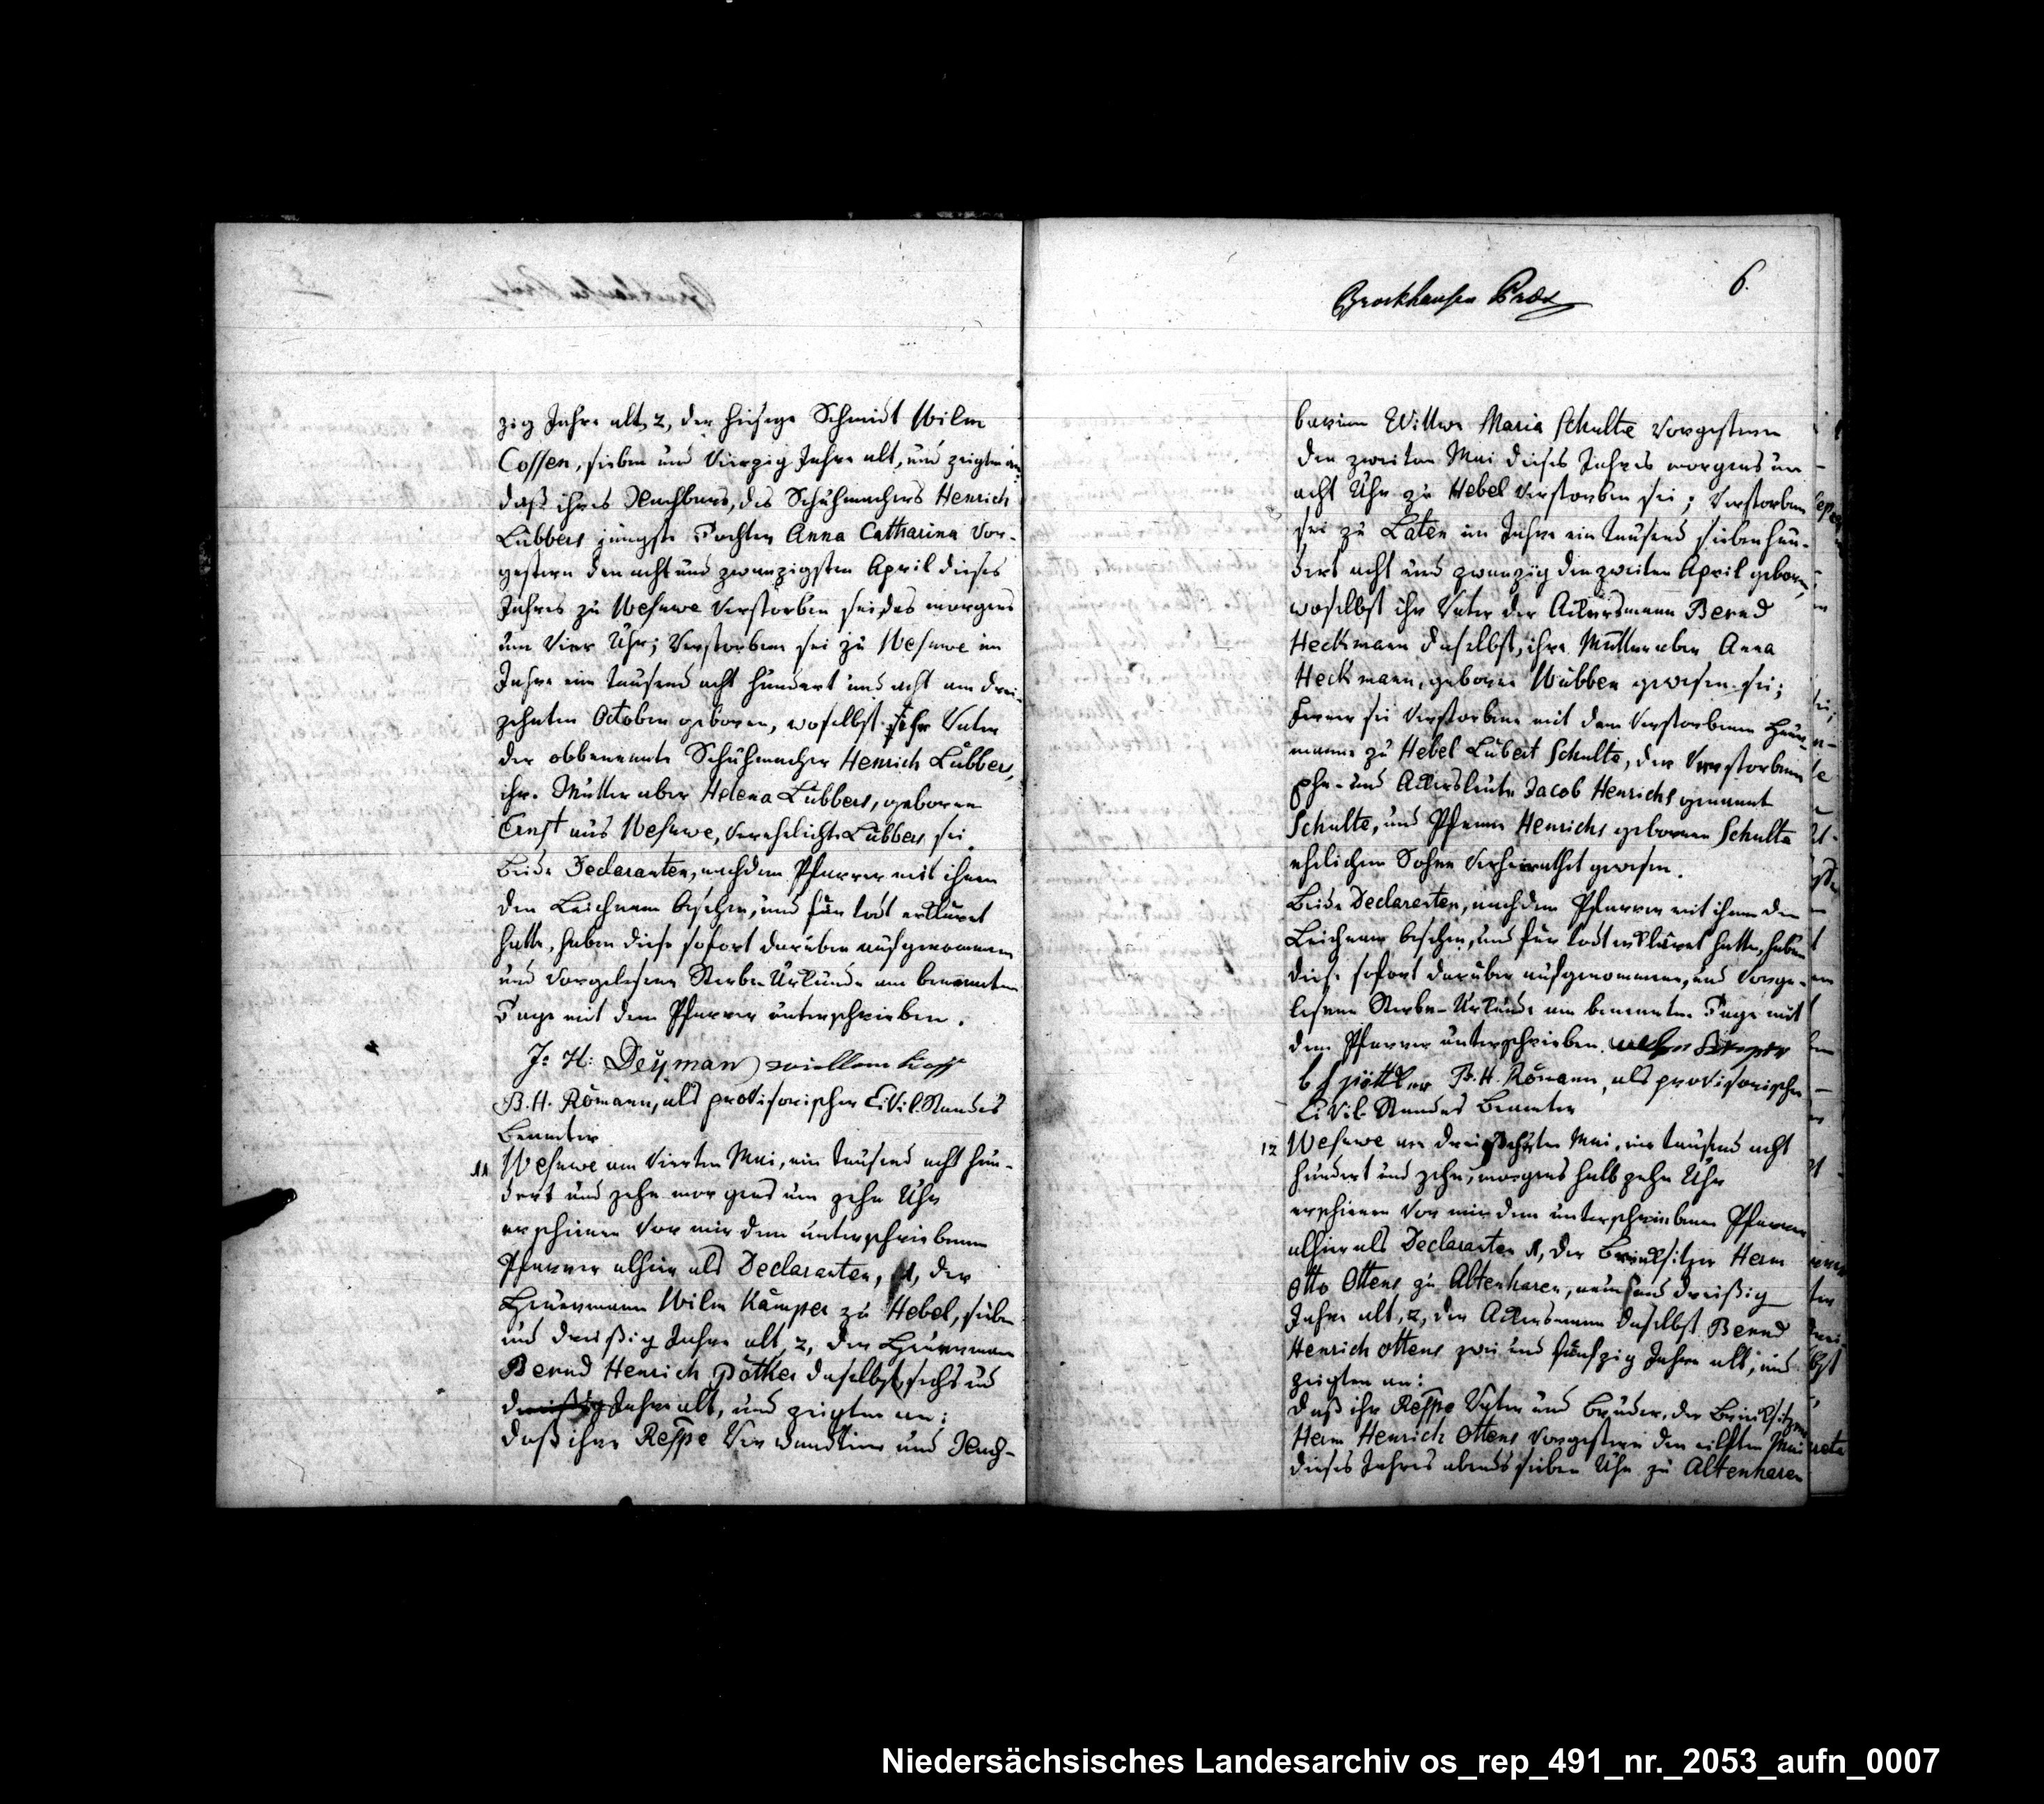 zig Jahre alt, 2, der hiesige Schmidt Wilm
Cossen, sieben und Vierzig Jahre alt, und zeigten an:
daß ihres Nachbars, des Schuhmachers Henrich
Lübbers jüngste Tochter Anna Catharina Vor-
gestern den acht und zwanzigsten April dieses
Jahres zu Wesuwe Verstorben sei, des morgens
um Vier Uhr; Verstorbene sei zu Wesuwe im
Jahre ein tausend acht hundert und acht am drei-
zehnten October geboren, woselbst ihr Vater
der obbenennte Schuhmacher Henrich Lübbers,
ihre Mutter aber Helena Lübbers, geborne
Ernst aus Wesuwe, Verehlichte Lübbers sei.
Beide Declaranten, nachdem Pfarrer mit ihnen
den Leichnam besehen, und für todt erkläret
hatte, haben diese sofort darüber aufgenommene
und Vorgelesene Sterbe-Urkunde am benannten
Tage mit dem Pfarrer unterschrieben.
J: H: Deyman willem koss
B. H. Römann, als provisorischer Civil-Standes
Beamter
11 Wesuwe am Vierten Mai, ein tausend acht hun-
dert und zehn morgens um zehn Uhr
erschienen Vor mir dem unterschriebenen
Pfarrer alhier als Declaranten, 1, der
Heuermann Wilm Kämper zu Hebel, sieben
und dreißig Jahre alt, 2, der Heuermann
Bernd Henrich Pötker daselbst, sechs und
dreißig Jahre alt, und zeigten an:
daß ihre Respe Verwandtinn und Nach-
Brockhausen Präs
6.
barinn Wittwe Maria Schulte Vorgestern
den zweiten Mai dieses Jahres morgens um
acht Uhr zu Hebel Verstorben sei; Verstorbene
sei zu Laten im Jahre ein tausend siebenhun-
dert acht und zwanzig den zweiten April geboren,
woselbst ihr Vater der Ackersmann Bernd
Heckmann daselbst, ihre Mutter aber Anna
Heckmann, geborne Wübben gewesen sei;
ferner sei Verstorbene mit dem Verstorbenen Heuer-
manne zu Hebel Lübert Schulte, der Verstorbenen
Ehe- und Ackersleute Jacob Henrichs genannt
Schulte, und Henrichs gebornen Schulte
ehelichen Sohne Verheirathet gewesen.
Beide Declaranten, nachdem Pfarrer mit ihnen den
Leichnam besehen, und für todt erkläret hatte, haben
diese sofort darüber aufgenommene, und Vorge-
lesene Sterbe-Urkunde am benannten Tage mit
dem Pfarrer unterschrieben.
b h pöttker B. H. Römann, als provisorischer
Civil-Standes Beamter
12 Wesuwe am dreizehnten Mai, ein tausend acht
hundert und zehn, morgens halb zehn Uhr
erschienen Vor mir dem unterschriebenen Pfarrer
alhier als Declaranten 1, der Brinksitzer Herm
Otto Ottens zu Altenharen, neun und dreißig
Jahre alt, 2, der Ackersmann daselbst Bernd
Henrich Ottens zwei und funfzig Jahre alt, und
zeigten an:
daß ihr Respe Vater und Bruder, der Brinksitzer
Herm Henrich Ottens Vorgestern den eilften Mai
dieses Jahres abends sieben Uhr zu Altenharen
Niedersächsisches Landesarchiv os_rep_491_nr._2053_aufn_0007